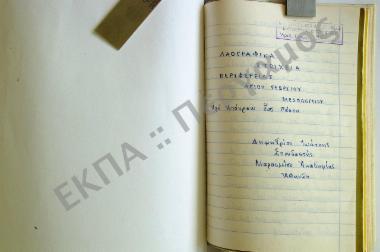 ΛΑΟΓΡΑΦΙΚΑ
ΣΤΟΙΧΕΙΑ
ΠΕΡΙΦΕΡΕΙΑΣ
ΑΓΙΟΥ ΓΕΩΡΓΙΟΥ
ΜΕΣΟΛΟΓΓΙΟΥ
Δημητρίου Ιωάννης
Σπουδαστής
Μαρασλείου Ακαδημίας
Αθηνών
ΕΚΠΑ :: Πέργαμος